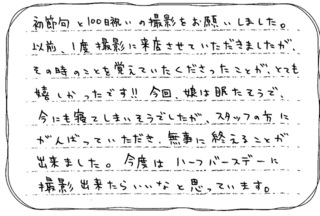 初節句と100日祝いの撮影をお願いしました。
以前、1度撮影に来店させていただきましたが、
その時のことを覚えていたくださったことが、とても
嬉しかったです!! 今回、娘は眠たそうで、
今にも寝てしまいそうでしたが、スタッフの方に
がんばっていただき、無事に終えることが
出来ました。今度はハーフバースデーに
撮影出来たらいいなと思っています。